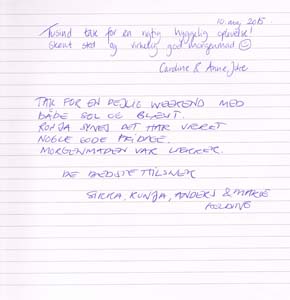 10. maj 2015
Tusind tak for en rigtig hyggelig oplevelse!
Skønt sted og virkelig god morgenmad ☺
Caroline & Anne Julie
TAK FOR EN DEJLIG WEEKEND MED
BÅDE SOL OG BLÆST.
RONJA SYNES DET HAR VÆRET
NOGLE GODE FRIDAGE.
MORGENMADEN VAR LÆKKER.
DE BEDSTE HILSNER
RONJA, ANDERS & MARIE